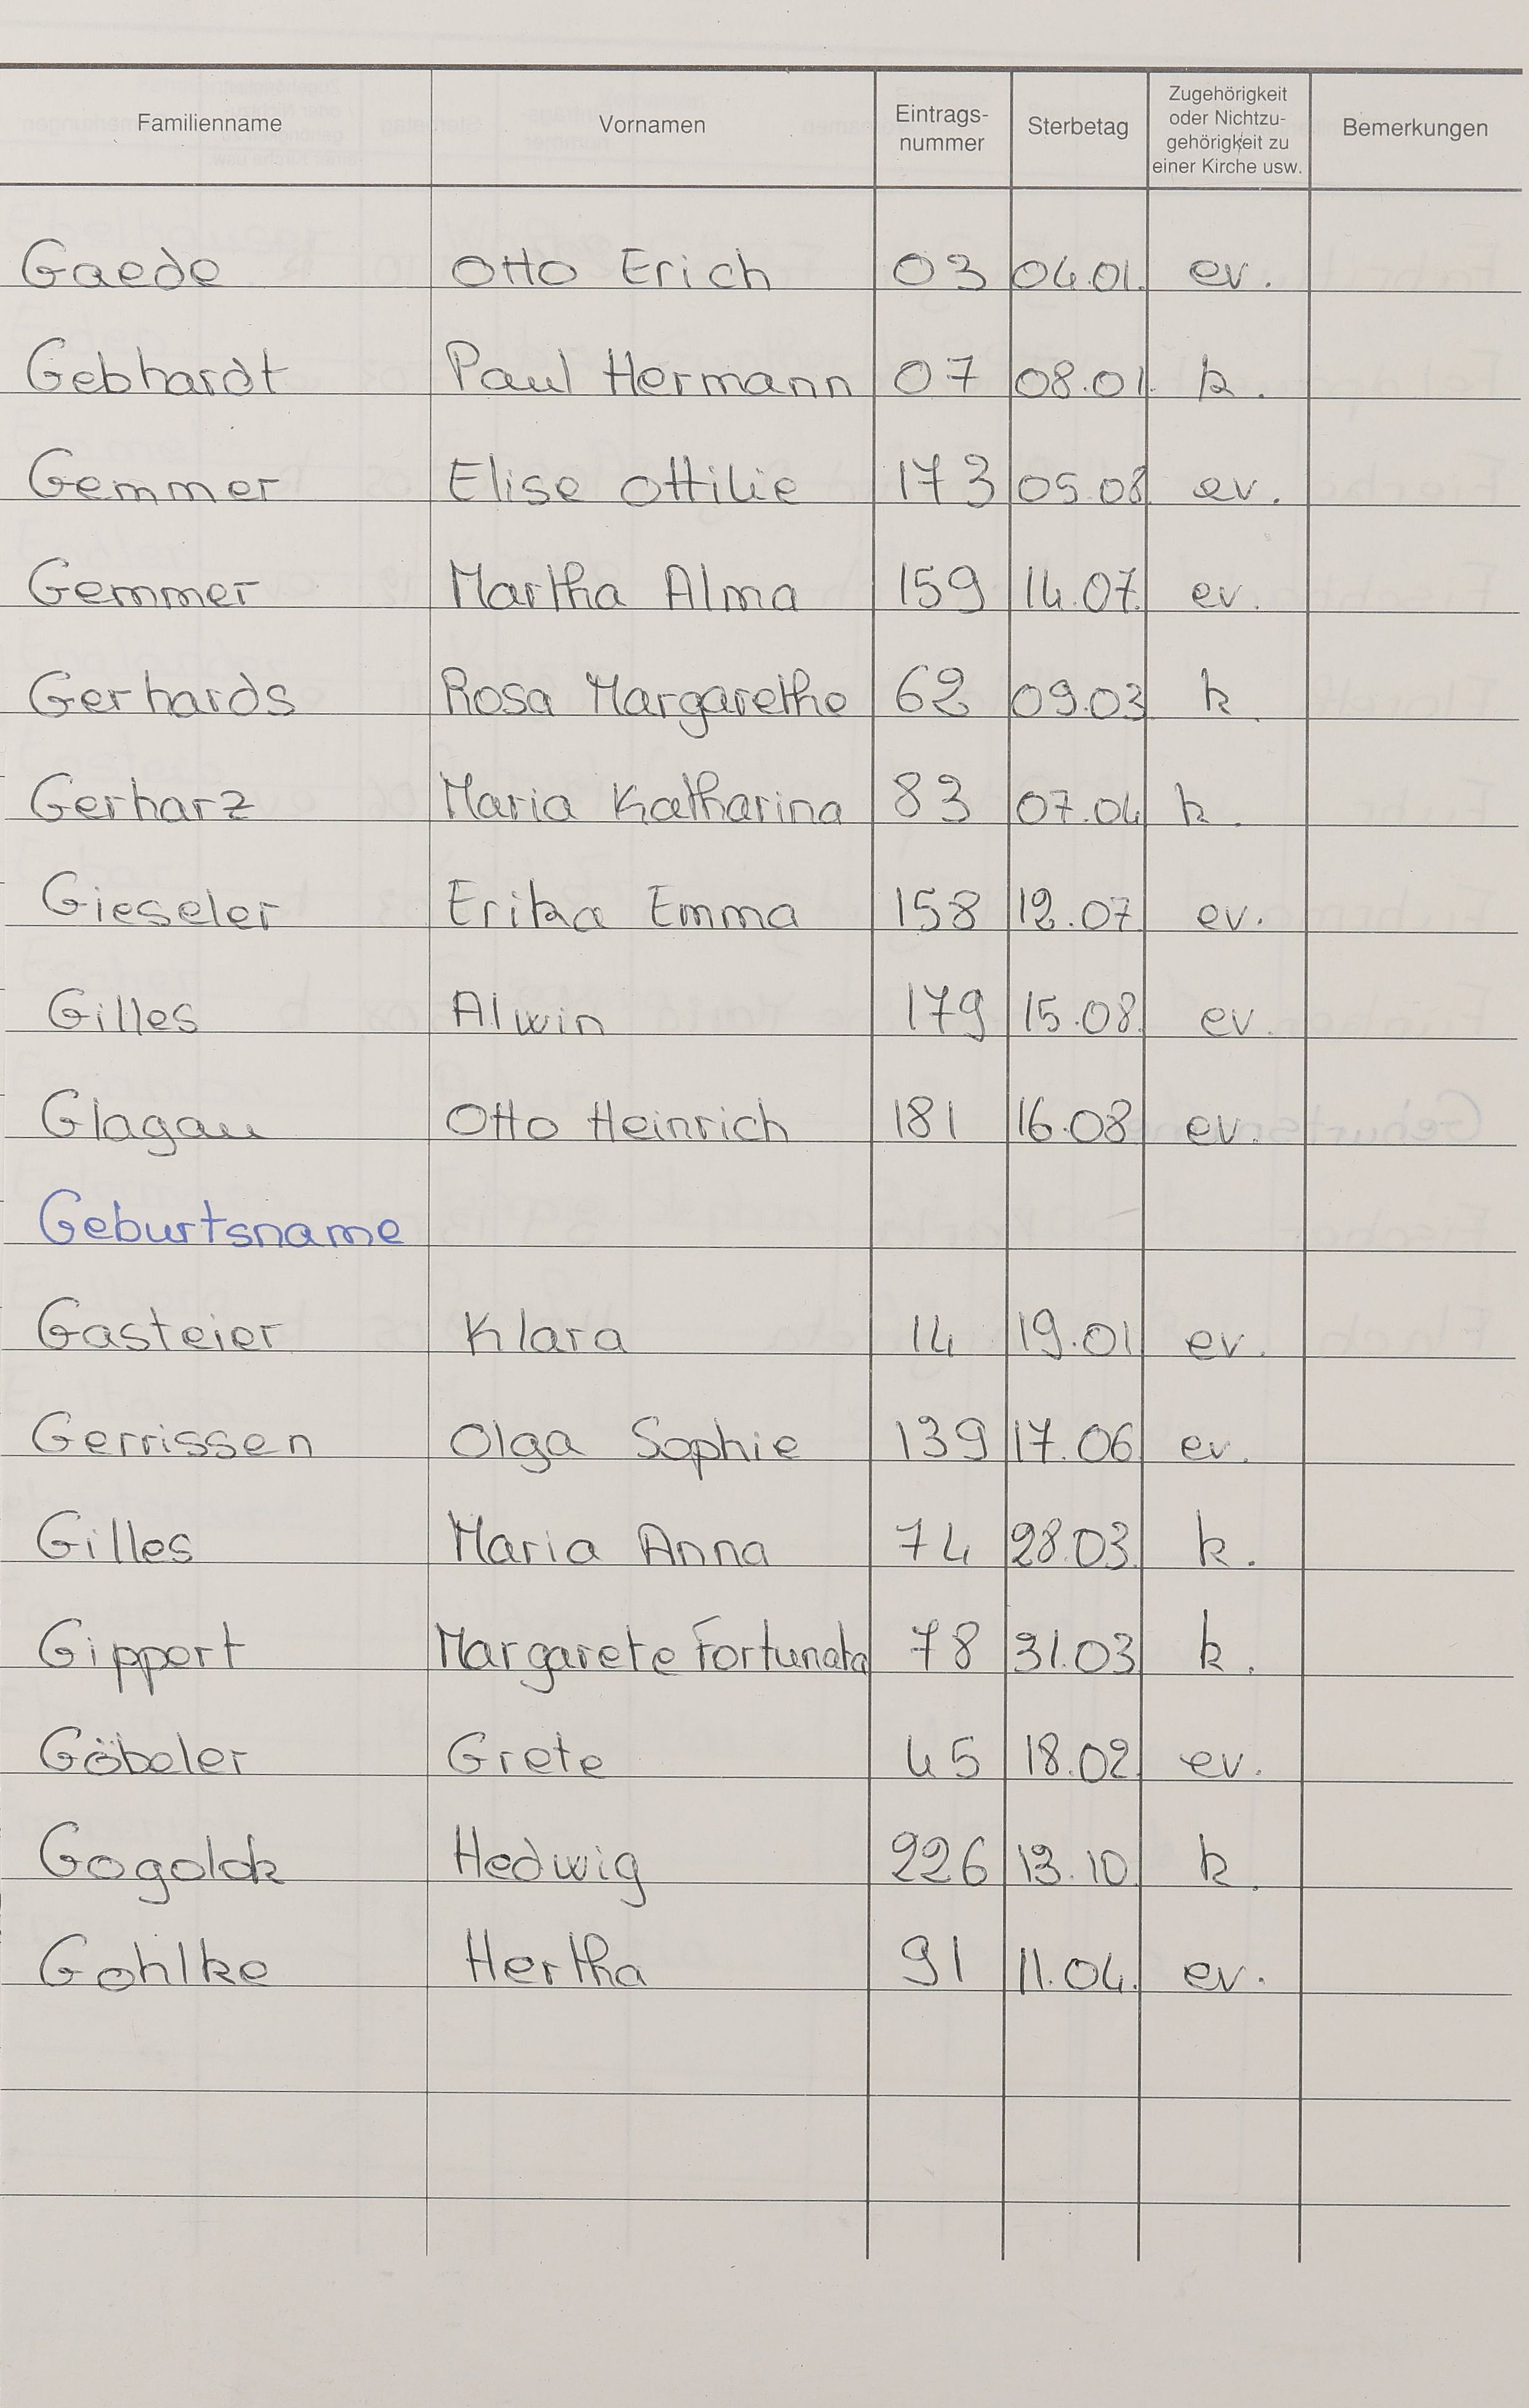 Familienname Vornamen Eintrags-nummer Sterbetag Zugehörigkeit oder Nichtzu-gehörigkeit zu einer Kirche usw. Bemerkungen
Gaede Otto Erich 03 04.01. ev.
Gebhardt Paul Hermann 07 08.01. k.
Gemmer Elise Ottilie 173 05.08 ev.
Gemmer Martha Alma 159 14.07. ev.
Gerhards Rosa Margarethe 62 09.03 k.
Gerharz Maria Katharina 83 07.04 k.
Gieseler Erika Emma 158 12.07 ev.
Gilles Alwin 179 15.08. ev.
Glagau Otto Heinrich 181 16.08 ev.
Geburtsname
Gasteier Klara 14 19.01 ev.
Gerrissen Olga Sophie 139 17.06 ev.
Gilles Maria Anna 74 28.03. k.
Gippert Margarete Fortunata 78 31.03 k.
Göbeler Grete 45 18.02. ev.
Gogolok Hedwig 226 13.10. k.
Gohlke Hertha 91 11.04. ev.